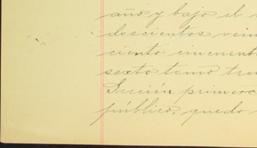 año y bajo el
doscientos vein
ciento cincuent
sexto tomo tre
Sección primera
público, quedo